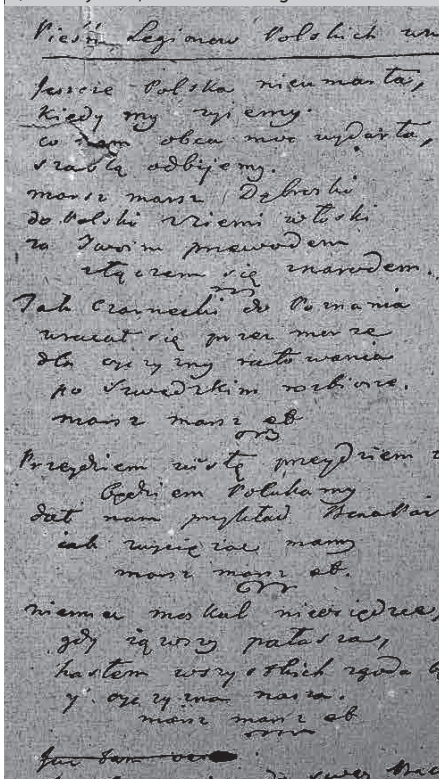 Pieśń Legionow Polskich
Jeszcze Polska nieumarła,
kiedy my żyiemy.
co nam obca moc wydarła,
szablą odbijemy.
marsz marsz Dąbroski
do Polski z ziemi włoski
za Twoim przewodem
złączem się znarodem.
Jak Czarnecki do Poznania
wracał się przez morze
dla oyczyzny ratowania
po Szwedzkim rozbiorze.
marsz marsz etc
Przeydziem wisłę przeydziem
będziem Polakamy
dał nam przykład BonaPar
iak zwyciężac mamy
marsz marsz etc.
niemiec moskal nieosiędzie,
gdy iąwszy pałasza,
hasłem wszystkich zgoda
y oyczyzna nasza.
marsz marsz etc